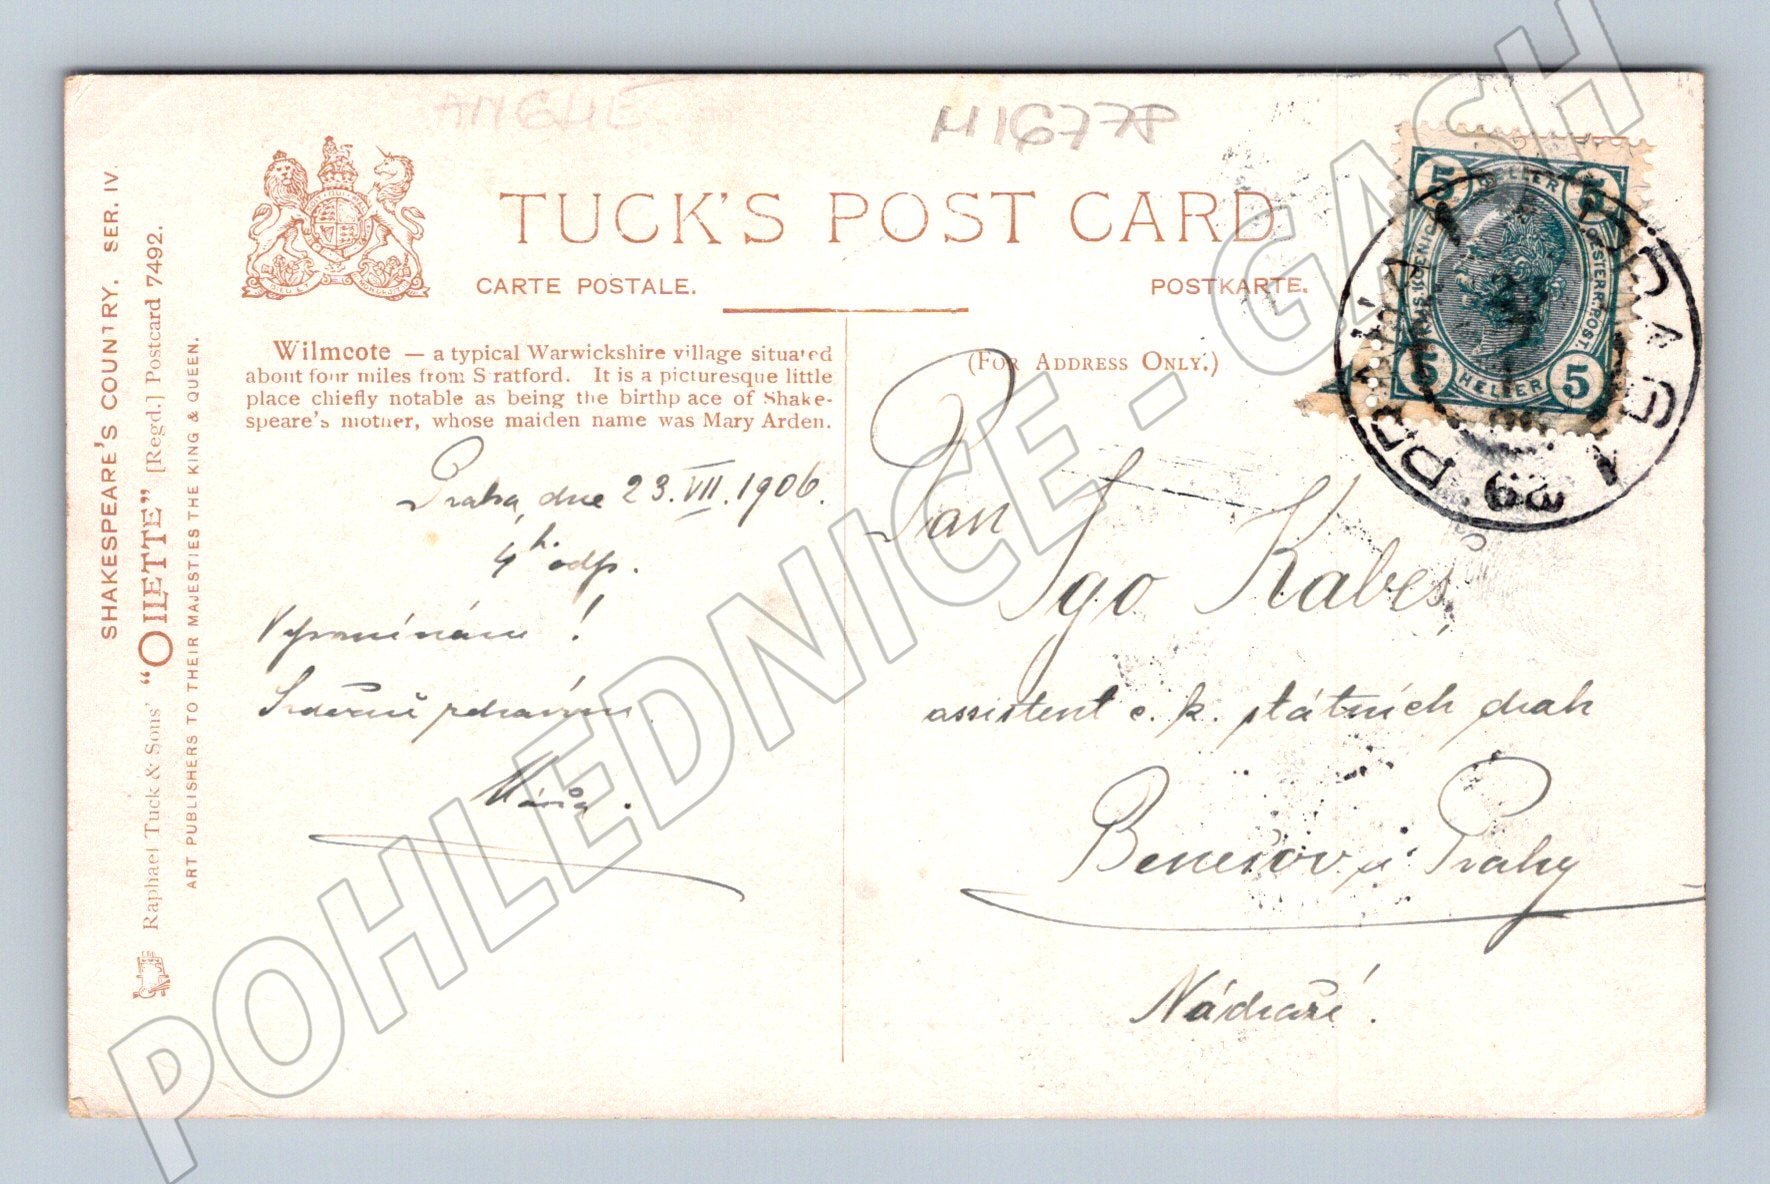 ANGLIE
M 16778
TUCK'S POST CARD
CARTE POSTALE.
POSTKARTE.
SHAKESPEARE'S COUNTRY. SER. IV.
Raphael Tuck & Sons' "OILETTE" [Regd.] Postcard 7492.
ART PUBLISHERS TO THEIR MAJESTIES THE KING & QUEEN.
Wilmcote — a typical Warwickshire village situated
about four miles from Stratford. It is a picturesque little
place chiefly notable as being the birthplace of Shake-
speare's mother, whose maiden name was Mary Arden.
Praha, dne 23. VII. 1906.
4 h. odp.
Vzpomínám!
Srdečně zdravím
Máňa.
(For Address Only.)
Pan
Igo Kabeš,
assistent c. k. státních drah
Benešov u Prahy
Nádraží.
5 HELLER 5
5 HELLER 5
OESTERR. POST.
PRAHA 1 PRAG 1
POHLEDNICE - GASH